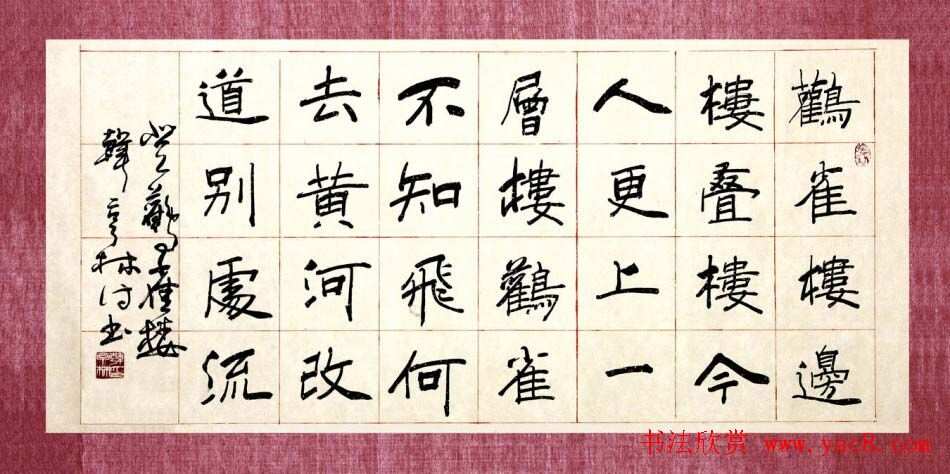 鸛雀樓邊
樓叠樓今
人更上一
層樓鸛雀
不知飛何
去黄河改
道别處流
登鸛雀樓
韓亨林诗书
书法欣赏 www.yac8.com